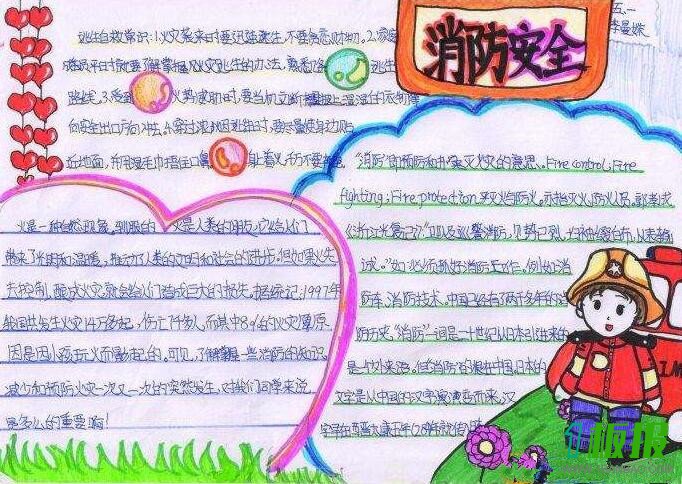 消防安全
五、一
李曼姝
逃生自救常识:1.火灾袭来时要迅速逃生,不要贪恋财物。2.家庭
成员平时就要了解掌握火灾逃生的办法,熟悉
逃生
路线。3.受到
火势威胁时,要当机立断
上湿湿的衣物
向安全出口方向冲去。4.穿过浓烟逃生时,要尽量使身边贴
近地面,并用湿毛巾捂住口鼻
身着火,千万不要
火是一种自然现象,驯服的火是人类的朋友,它给人们
带来了光明和温暖,推动了人类的文明和社会的进步。但如果火失
去控制,酿成火灾,就会给人们造成巨大的损失。据统计:1997年
我国共发生火灾14万多起,伤亡7千多人,而其中8%的火灾原
因是因小孩玩火而引起的。可见,了解掌握一些消防的知识,
减少和预防火灾一次又一次的突然发生,对我们同学来说
是多么的重要啊!
“消防”即预防和扑灭火灾的意思。Fire control; Fire
fighting; Fire protection.救火与防火。亦指灭火、防火人员。郭孝成
《浙江光复记》:
诚。”如:必须抓好消防工作,例如:消
防车、消防技术。中国已经有了两千多年的消
防历史。“消防”一词是二十世纪从日本引进来的
是个外来语。但消防的根在中国,日本的
汉字是从中国的汉字演变而来,汉
字在西晋太康五年(284年)就传入日
板报